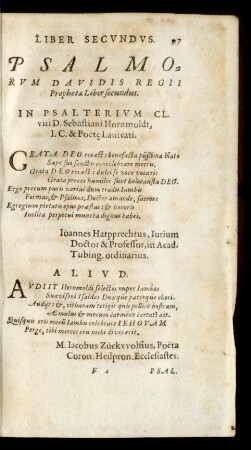 LIBER SECVNDVS. 97
PSALMO-
RVM DAVIDIS REGII
Prophetæ Liber secundus.
IN PSALTERIVM CL.
viri D. Sebastiani Hornmoldt,
I. C. & Poetę Laureati.
GRATA DEO res est: benefacta
Sæpe sui concelebrare metris.
Grata DEO res est: dulci se voce vocari:
Grata preces humiles sunt holocausta DEO.
Ergo precum puris varias dum tradis Iambis
Formas, & Psalmos, Doctor amande, sacros:
Egregium pietatis opus præstas: & honoris
Inclita perpetui munera dignus habes.
Ioannes Harpprechtus, Iurium
Doctor & Professor, in Acad.
Tubing. ordinarius.
ALIVD.
AVDIIT Hornmoldi selectos nuper Iambos
Suavisoni Isaides Duxque paterque chori.
Audijt: &, citharam tetigit qui pectine nostram,
Æmulus & mecum carmine certat ait.
Quisquis eris metro Iambo celebrare IEHOVAM
Perge, tibi merces
M. Iacobus Zückvvolfius, Poeta
Coron. Heilpron. Ecclesiastes.
PSAL.